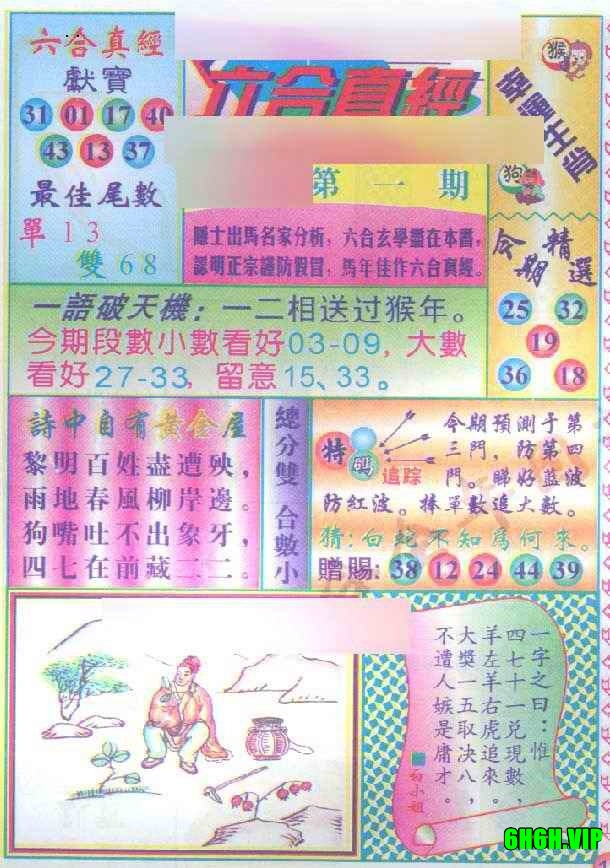 六合真經
獻寶
31 01 17 40
43 13 37
最佳尾數
單 1 3
雙 6 8
六合真經
第一期
隱士出馬名家分析，六合玄學盡在本冊，
認明正宗謹防假冒，馬年佳作六合真經。
幸運生肖
猴
狗
今期精選
25 32
19
36 18
一語破天機：一二相送过猴年。
今期段數小數看好03-09，大數
看好27-33，留意15、33。
詩中自有黃金屋
黎明百姓盡遭殃，
雨地春風柳岸邊。
狗嘴吐不出象牙，
四七在前藏二二。
總分雙 合數小
特碼
追踪
今期預測于第
三門，防第四
門。睇好藍波
防紅波。捧單數追大數。
猜：白蛇不知為何來。
贈賜：38 12 24 44 39
一字之曰：惟
四七十一兑現數，
羊左羊右虎追來。
大獎一五取决八，
不遭人嫉是庸才。
白小姐
6H6H.VIP